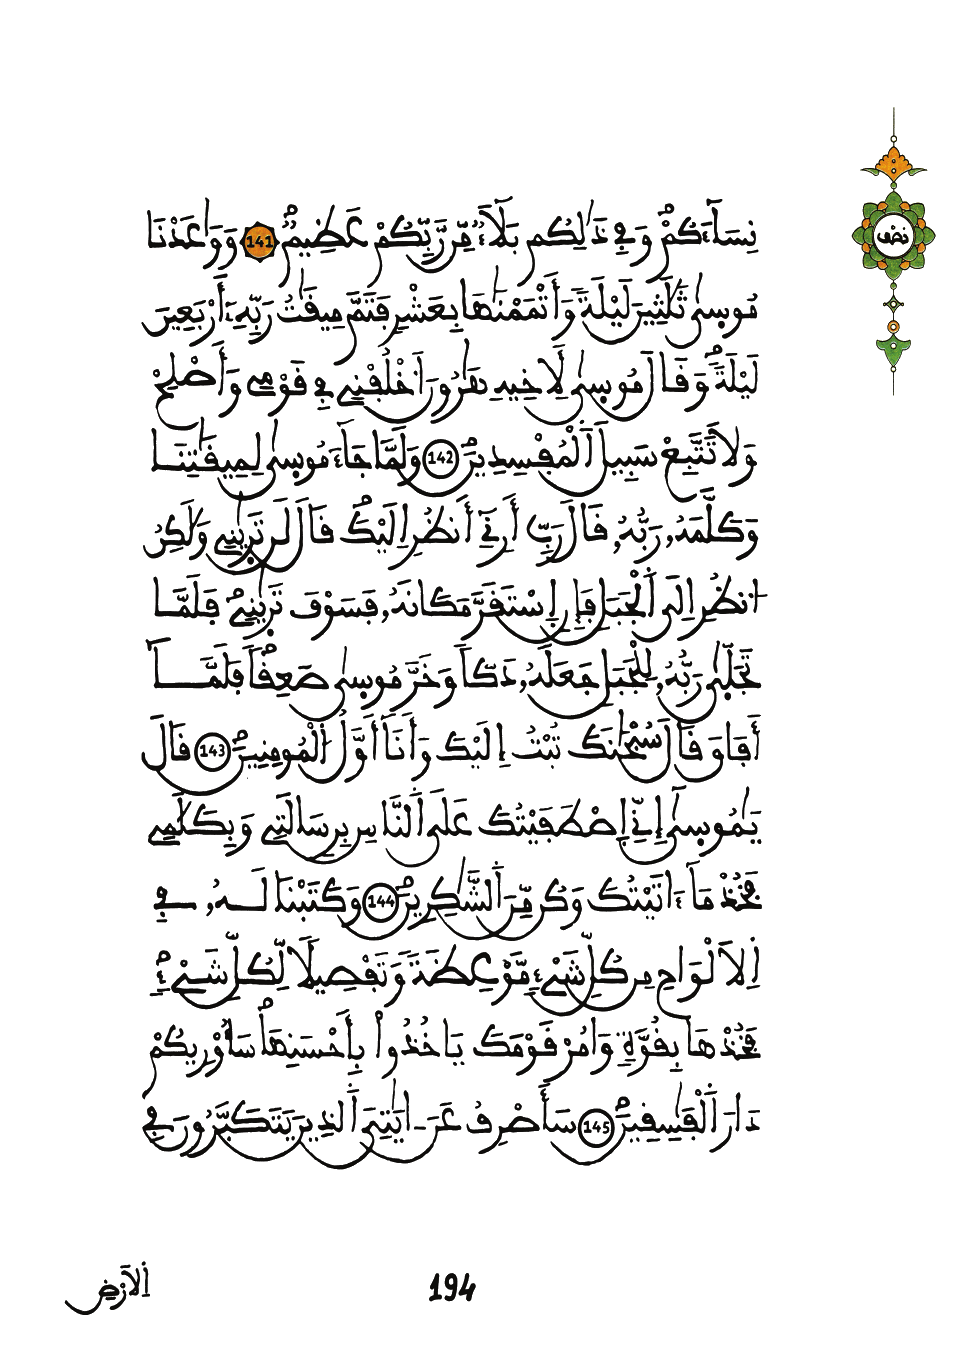 نِسَآءَكُمْ وَفِے ذَٰلِكُم بَلَآءٌ مِّن رَّبِّكُمْ عَظِيمٌ 141 وَوَٰعَدْنَا
نصف
مُوسِىٰ ثَلَٰثِينَ لَيْلَةً وَأَتْمَمْنَٰهَا بِعَشْرٍ فَتَمَّ مِيقَٰتُ رَبِّهِۦٓ أَرْبَعِينَ
لَيْلَةً وَقَالَ مُوسِىٰ لَأَخِيهِ هَٰرُونَ اَخْلُفْنِے فِے قَوْمِے وَأَصْلِحْ
وَلَا تَتَّبِعْ سَبِيلَ اَ۬لْمُفْسِدِينَ 142 وَلَمَّا جَآءَ مُوسِىٰ لِمِيقَٰتِنَا
وَكَلَّمَهُۥ رَبُّهُۥ قَالَ رَبِّ أَرِنِےٓ أَنظُرِ اِلَيْكَ قَالَ لَن تَرَىٰنِے وَلَٰكِنُ
اُ۟نظُرِ اِلَى اَ۬لْجَبَلِ فَإِنِ اِ۪سْتَقَرَّ مَكَانَهُۥ فَسَوْفَ تَرَىٰنِے فَلَمَّا
تَجَلَّىٰ رَبُّهُۥ لِلْجَبَلِ جَعَلَهُۥ دَكّاً وَخَرَّ مُوسِىٰ صَعِقاً فَلَمَّآ
أَفَاقَ قَالَ سُبْحَٰنَكَ تُبْتُ إِلَيْكَ وَأَنَآ أَوَّلُ اُ۬لْمُومِنِينَ 143 قَالَ
يَٰمُوسِىٰٓ إِنِّے اِ۪صْطَفَيْتُكَ عَلَى اَ۬لنَّاسِ بِرِسَٰلَتِے وَبِكَلَٰمِے
فَخُذْ مَآ ءَاتَيْتُكَ وَكُن مِّنَ اَ۬لشَّٰكِرِينَ 144 وَكَتَبْنَا لَهُۥ فِے
اِ۬لَالْوَاحِ مِن كُلِّ شَےْءٍ مَّوْعِظَةً وَتَفْصِيلًا لِّكُلِّ شَےْءٍ
فَخُذْهَا بِقُوَّةٍ وَامُرْ قَوْمَكَ يَاخُذُواْ بِأَحْسَنِهَا سَأُوْرِيكُمْ
دَارَ اَ۬لْفَٰسِقِينَ 145 سَأَصْرِفُ عَنَ اٰيَٰتِيَ اَ۬لذِينَ يَتَكَبَّرُونَ فِے
اِ۬لَارْضِ
194